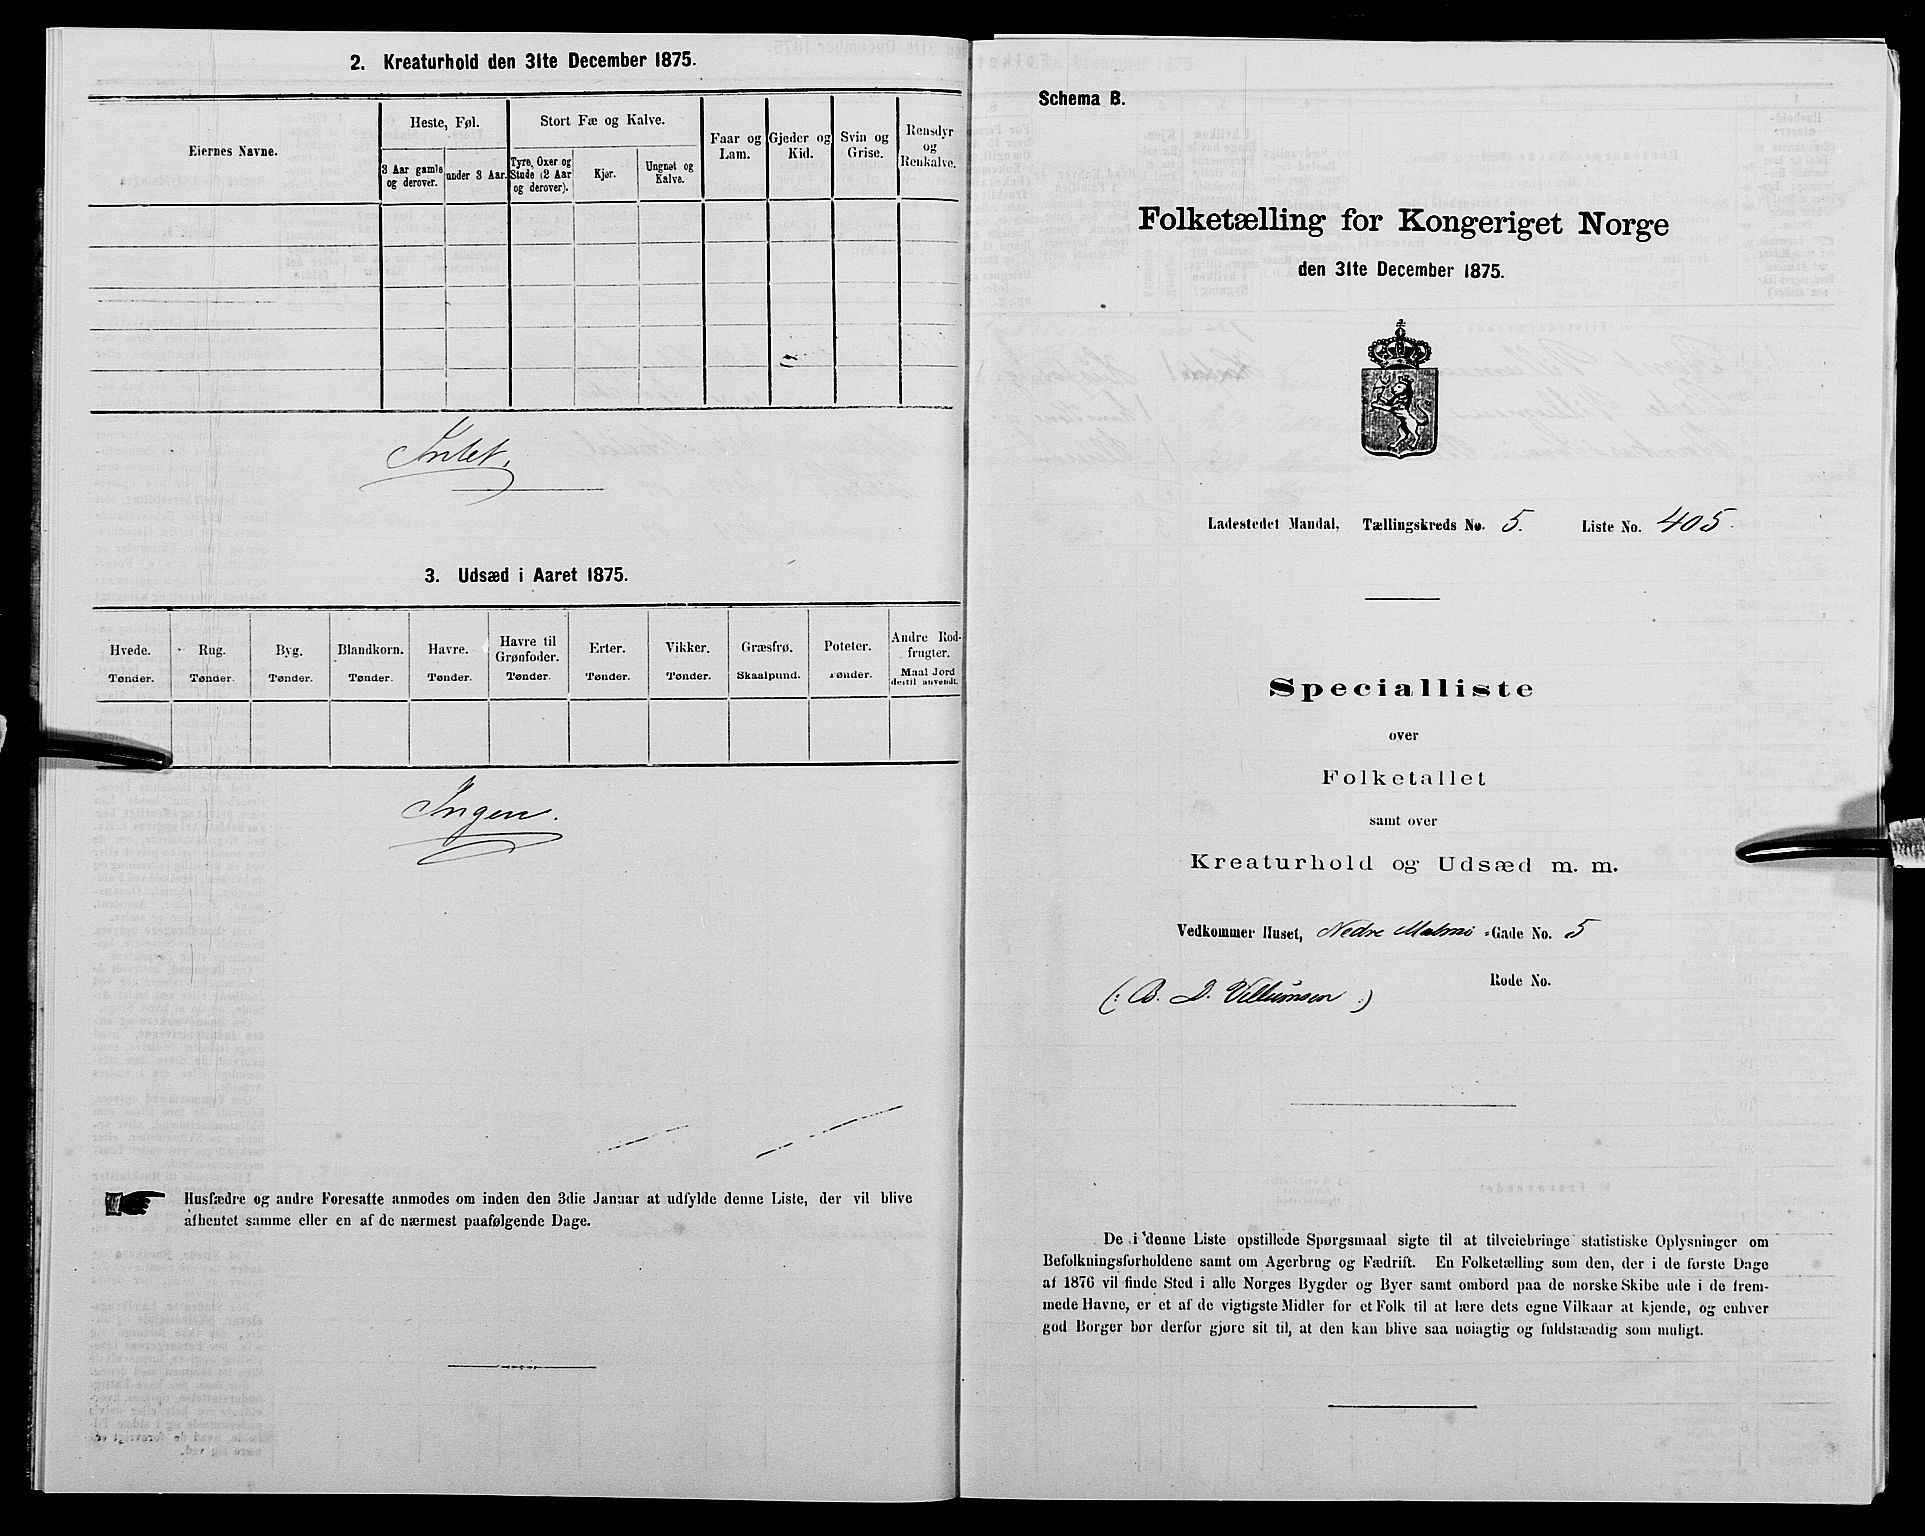 2. Kreaturhold den 31te December 1875.
Eiernes Navne.
Heste, Føl.
Stort Fæ og Kalve.
Faar og Lam.
Gjeder og Kid.
Svin og Grise.
Rensdyr og Renkalve.
3 Aar gamle og derover.
under 3 Aar.
Tyre, Oxer og Stude (2 Aar og derover).
Kjør.
Ungnøt og Kalve.
Intet.
3. Udsæd i Aaret 1875.
Hvede. Tønder.
Rug. Tønder.
Byg. Tønder.
Blandkorn. Tønder.
Havre. Tønder.
Havre til Grønfoder. Tønder.
Erter. Tønder.
Vikker. Tønder.
Græsfrø. Skaalpund.
Poteter. Tønder.
Andre Rodfrugter. Maal Jord dertil anvendt.
Ingen.
Husfædre og andre Foresatte anmodes om inden den 3die Januar at udfylde denne Liste, der vil blive
afhentet samme eller en af de nærmest paafølgende Dage.
Schema B.
Folketælling for Kongeriget Norge
den 31te December 1875.
Ladestedet Mandal, Tællingskreds No. 5. Liste No. 405.
Specialliste
over
Folketallet
samt over
Kreaturhold og Udsæd m. m.
Vedkommer Huset, Nedre Malmø-Gade No. 5
Rode No.
(: B. D. Villumsen :)
De i denne Liste opstillede Spørgsmaal sigte til at tilveiebringe statistiske Oplysninger om
Befolkningsforholdene samt om Agerbrug og Fædrift. En Folketælling som den, der i de første Dage
af 1876 vil finde Sted i alle Norges Bygder og Byer samt ombord paa de norske Skibe ude i de frem-
mede Havne, er et af de vigtigste Midler for et Folk til at lære dets egne Vilkaar at kjende, og enhver
god Borger bør derfor gjøre sit til, at den kan blive saa nøiagtig og fuldstændig som muligt.